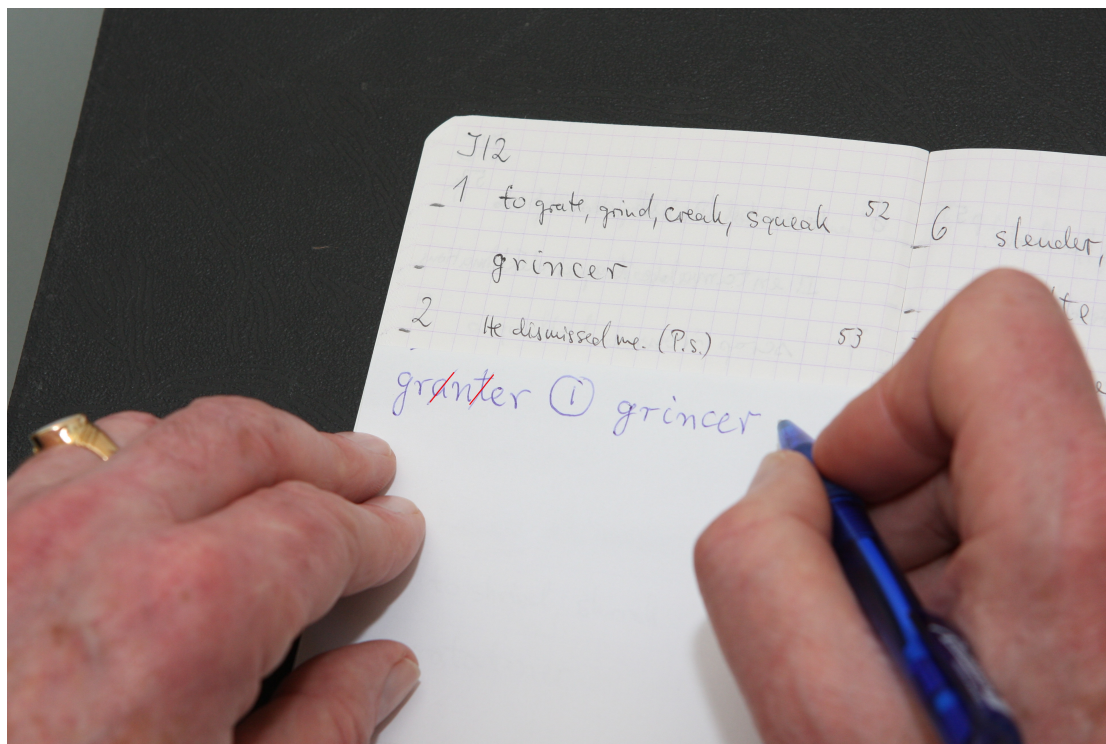 J12
1 to grate, grind, creak, squeak 52
grincer
2 He dismissed me. (P.s.) 53
granter i grincer
6 slender,